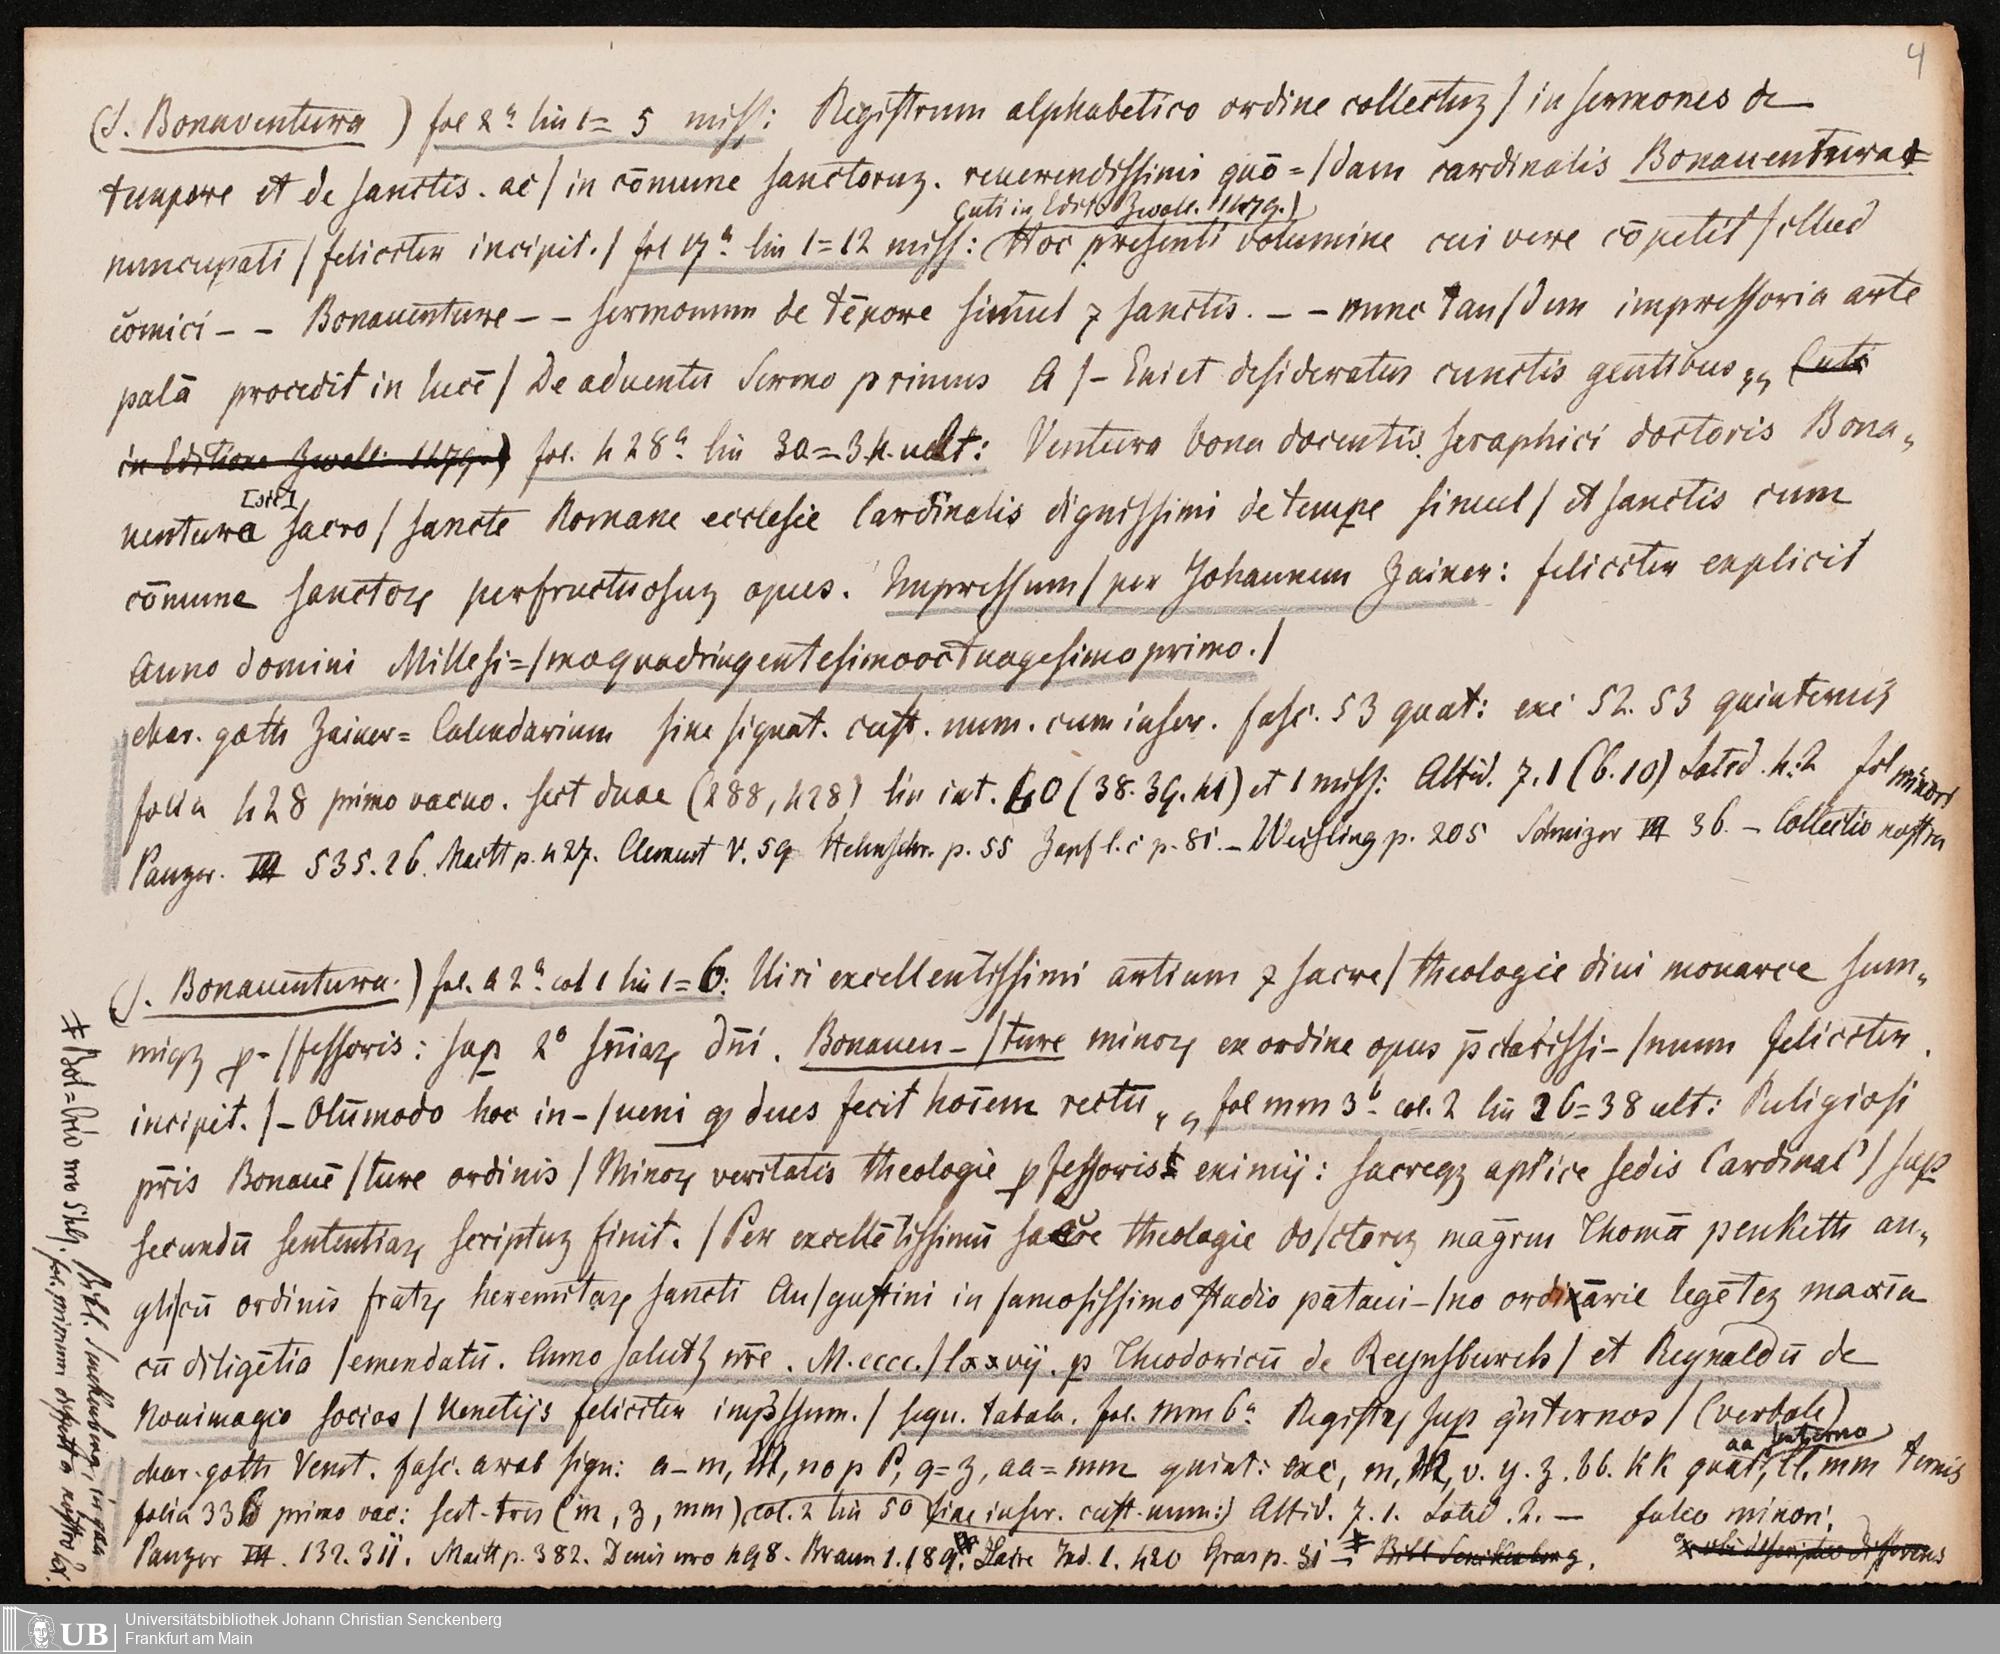 4
(S. Bonaventura) fol 2a lin 1=5 miss: Registrum alphabetico ordine collectuz / in sermones de
tempore et de sanctis. ac / in cōmune sanctoruz. reuerendissimi quō=/dam cardinalis Bonauentura
(uti in Edit. Zwoll. 1479.)
nuncupati / feliciter incipit. / fol 17a lin 1=12 miss: Hoc presenti volumine cui vere cōpetit / illud
comici - - Bonauenture - - sermonum de tēpore simul 7 sanctis. - - nunc tan/dem impressoria arte
palā procedit in lucē / De aduentu Sermo primus A / - Eniet desideratus cunctis gentibus „ (uti
in Editione Zwoll: 1479.) fol. 428a lin 30=34. ult: Ventura bona docentis seraphici doctoris Bona„
[sic]
uentura sacro / sancte Romane ecclesie Cardinalis dignissimi de tempe simul / et sanctis cum
cōmune sanctoꝝ perfructuosuz opus. Impressum / per Johannem Zainer: feliciter explicit
Anno domini Millesi=/moquadringentesimooctuagesimoprimo. /
char. goth Zainer= Calendarium sine signat. cust. num. cum inser. fasc. 53 quat: exc 52. 53 quinternis
folia 428 primo vacuo. sect duae (288, 428) lin int. 40 (38. 39. 41) et 1 miss: Altid. 7.1 (6.10) Latid. 4:2 fol minori
Panzer. III 535.26. Maitt p. 427. Clement V. 59 Helmschr. p. 55 Zapf l. c p. 81. - Weisling p. 205 III 36. - Collectio nostra
S. Bonauentura.) fol. a 2a col 1 lin 1=6: Uiri excellentissimi artium 7 sacre / theologie diui monarce sum„
miqz ꝓ-/fessoris: sup 2o sn̄iaꝝ dn̄i. Bonauen-/ture minoꝝ ex ordine opus p̄clarissi-/mum feliciter
incipit. / - Olūmodo hoc in-/ueni ꝙ deus fecit hoīem rectū „ „ fol mm 3b col. 2 lin 26=38 ult: Religiosi
pr̄is Bonauē/ture ordinis / Minoꝝ veritatis theologie ꝓfessoris eximij: sacreqz aplice sedis Cardinal' / sup
secundū sententiaꝝ scriptuz finit. / Per excellētissimū sacre theologie do/ctorez magr̄m Thomā penketh an„
glicū ordinis fratꝝ heremitaꝝ sancti Au/gustini in famosissimo studio pataui-/no ordinārie legētez maxīa
cū diligētia / emendatū. Anno salutz nr̄e. M.cccc./lxxvij. ꝑ Theodoricū de Reynsburch / et Reynaldū de
Nouimagio socios / Uenetijs feliciter imp̄ssum. / sequ. tabula. fol. mm 6a Registꝝ sup q̇nternos / (verbale)
aa quaterno
char. goth Venet. fasc. arab sign: a-m, M, n o p P, q=z, aa=mm quint: exc, m, M, v. y. z. bb. kk quat, ll. mm ternis
folia 336 primo vac: sect. tres (m, z, mm) col. 2 lin 50 (sine inser. cust. num:) Altid. 7.1. Latid. 2. - folio minori.
Panzer III. 132.311. Maitt p. 382. Denis nro 498. Braun 1.189. Laire Ind. 1. 420 Gras p. 31 - Bibl Senckenberg.
Bibl. Senckenberg. in qua